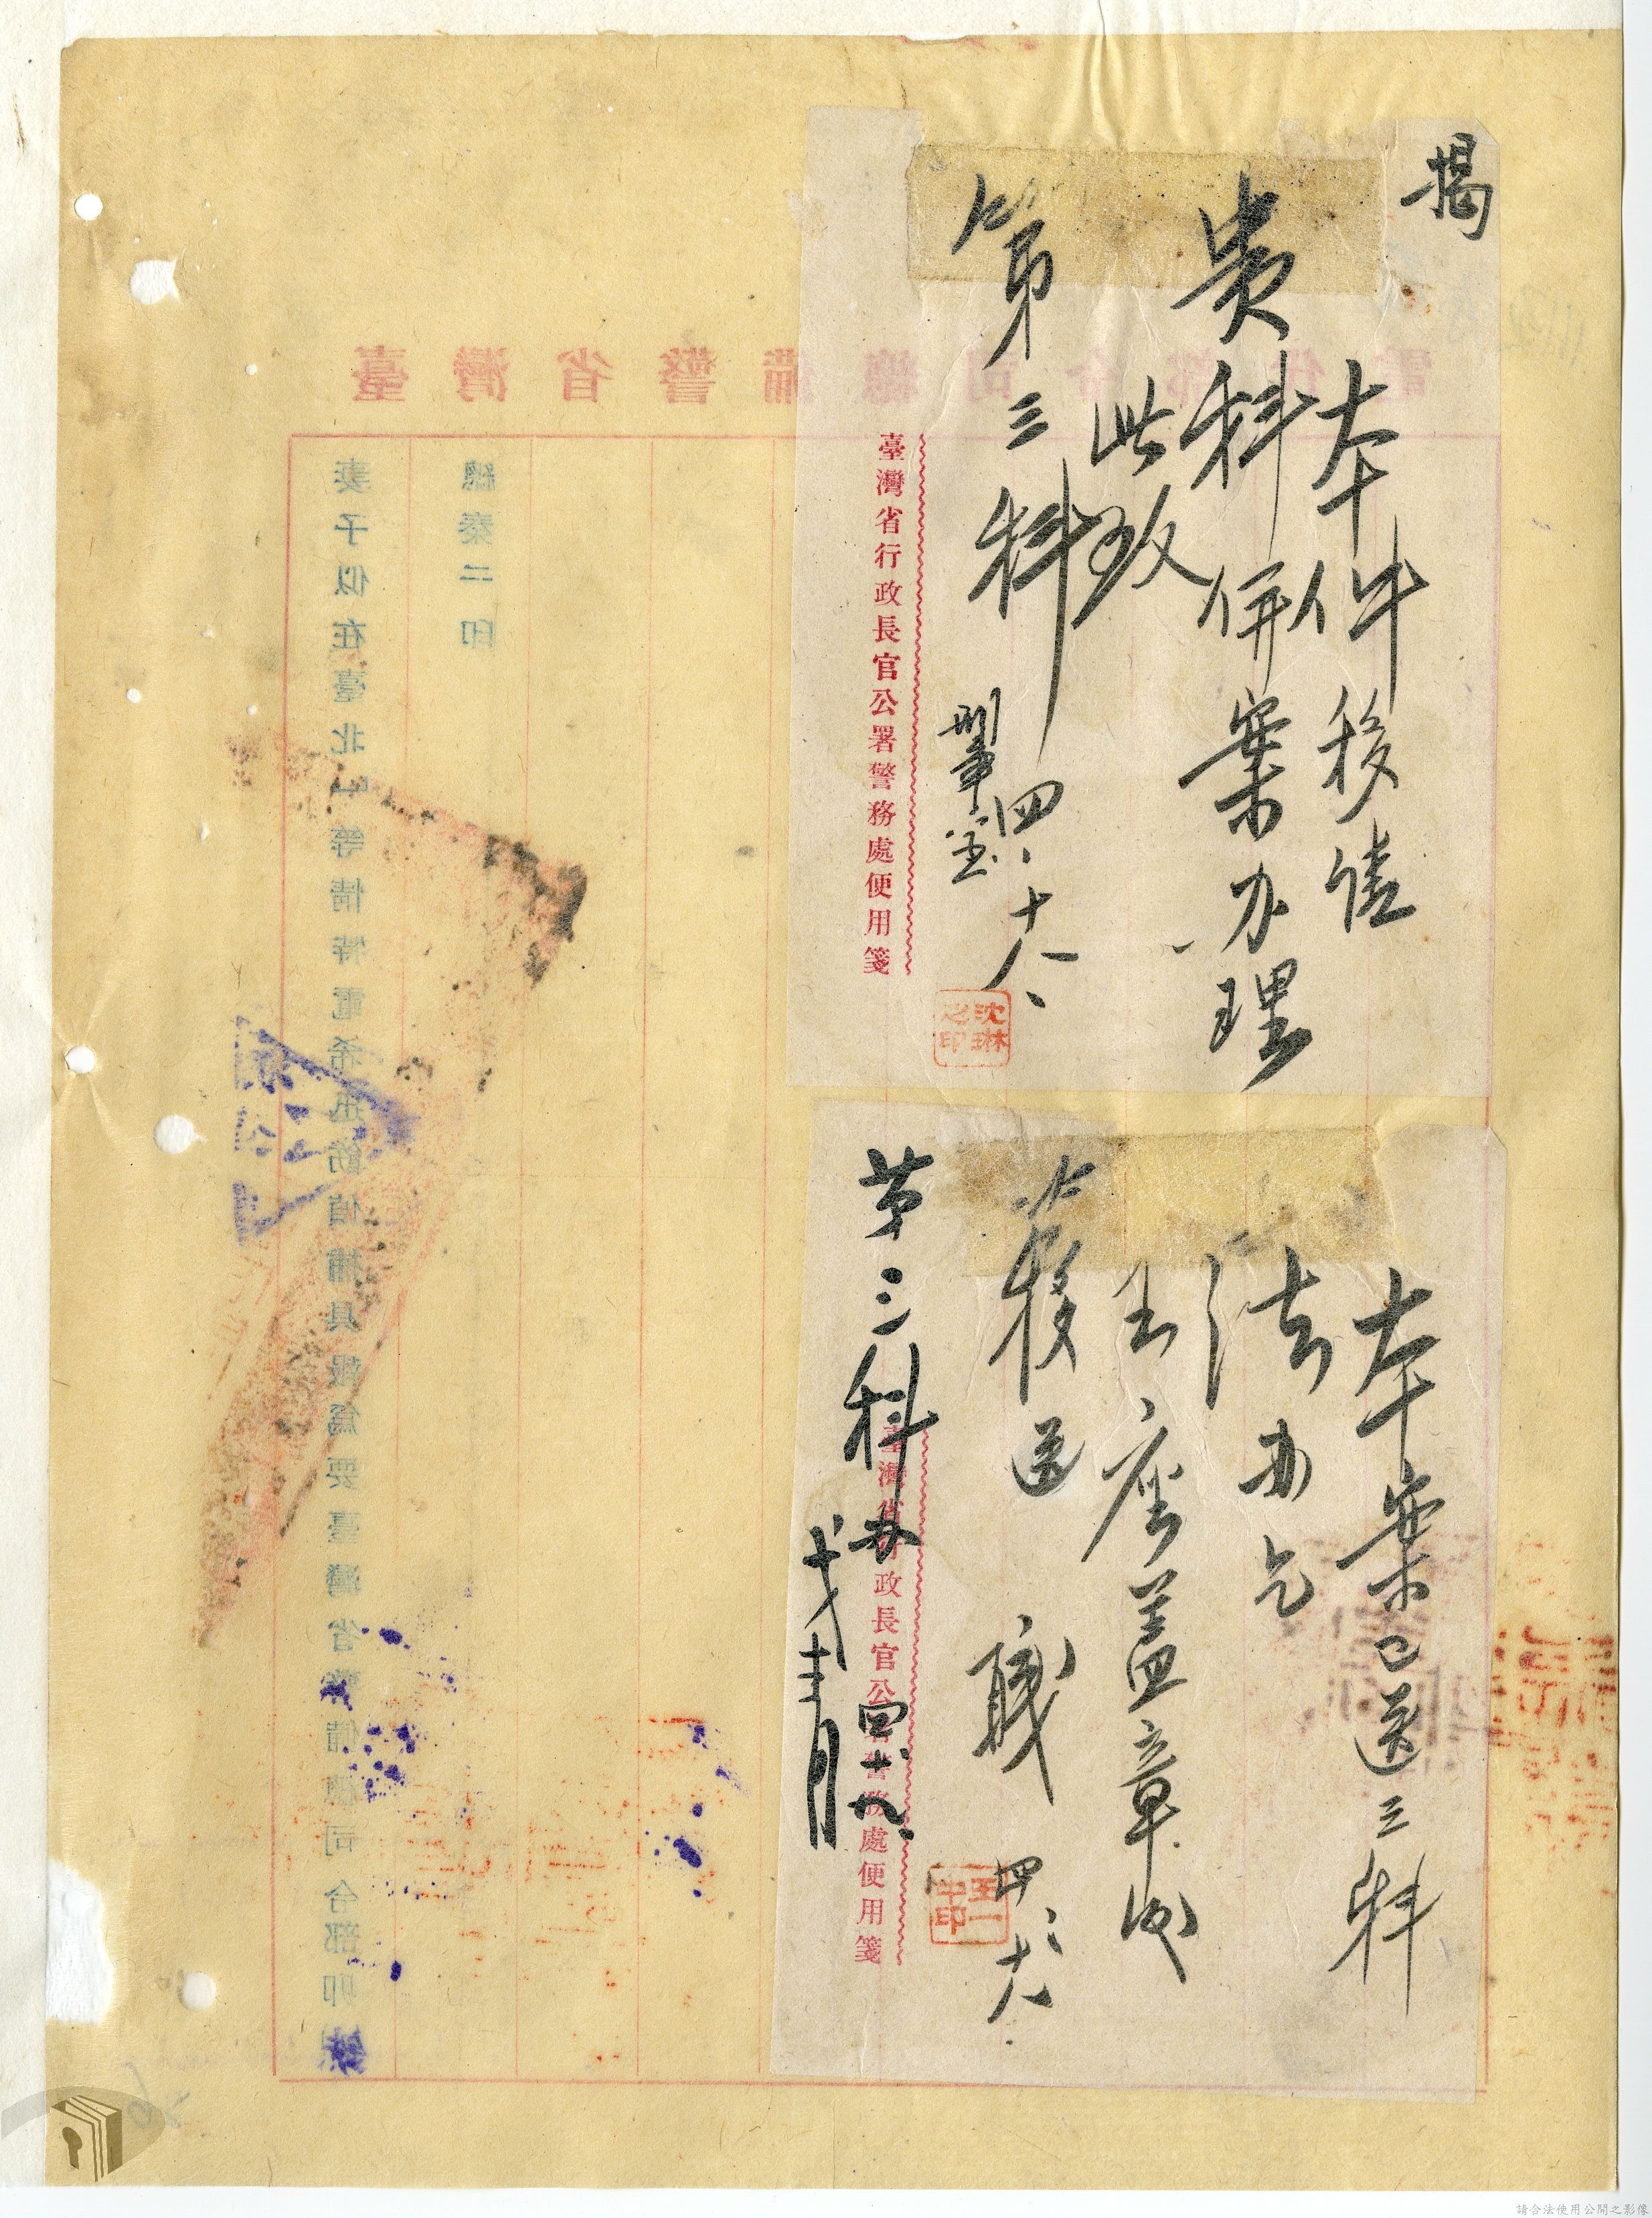 揭
本件移請
貴科併案办理
此致
第三科
四、十八、
沈琳之印
臺灣省行政長官公署警務處便用箋
本案已送三科
法办乞
主座蓋章後
移送
職
四、十八、
王一中印
第三科办
四、十九、
臺灣省行政長官公署警務處便用箋
臺灣省警備總司令部代電
總秦二印
妻子似在臺北等情特電希迅飭偵捕具報為要臺灣省警備總司令部卯
請合法使用公開之影像